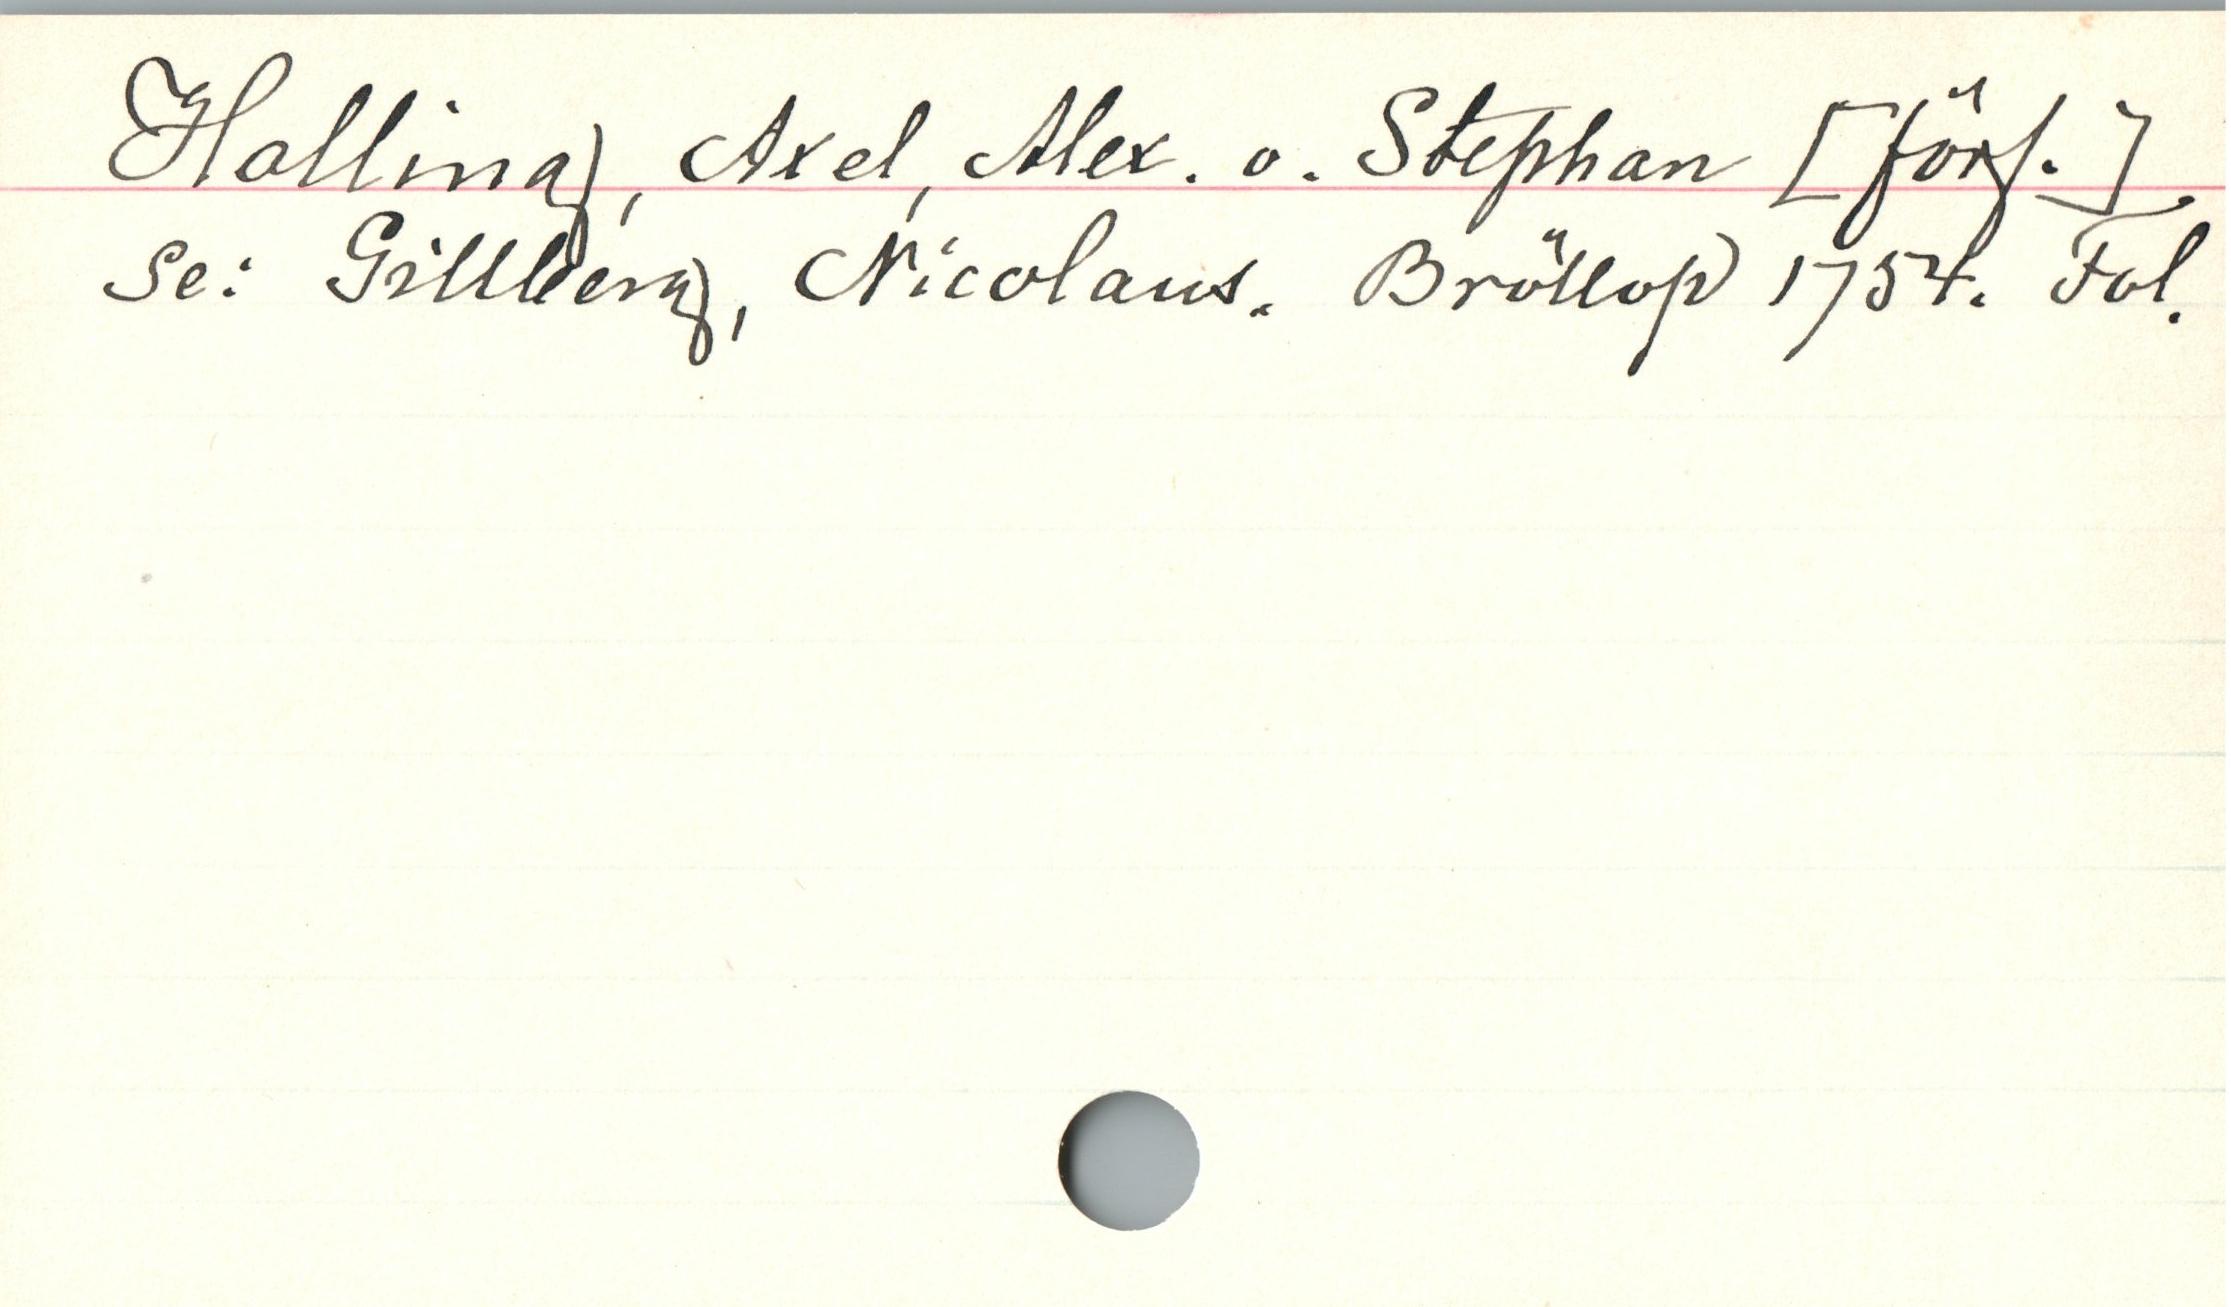 Halling, Axel, Alex. o. Stephan [förf.].
se: Gillberg, Nicolaus. Bröllop 1754. Fol.